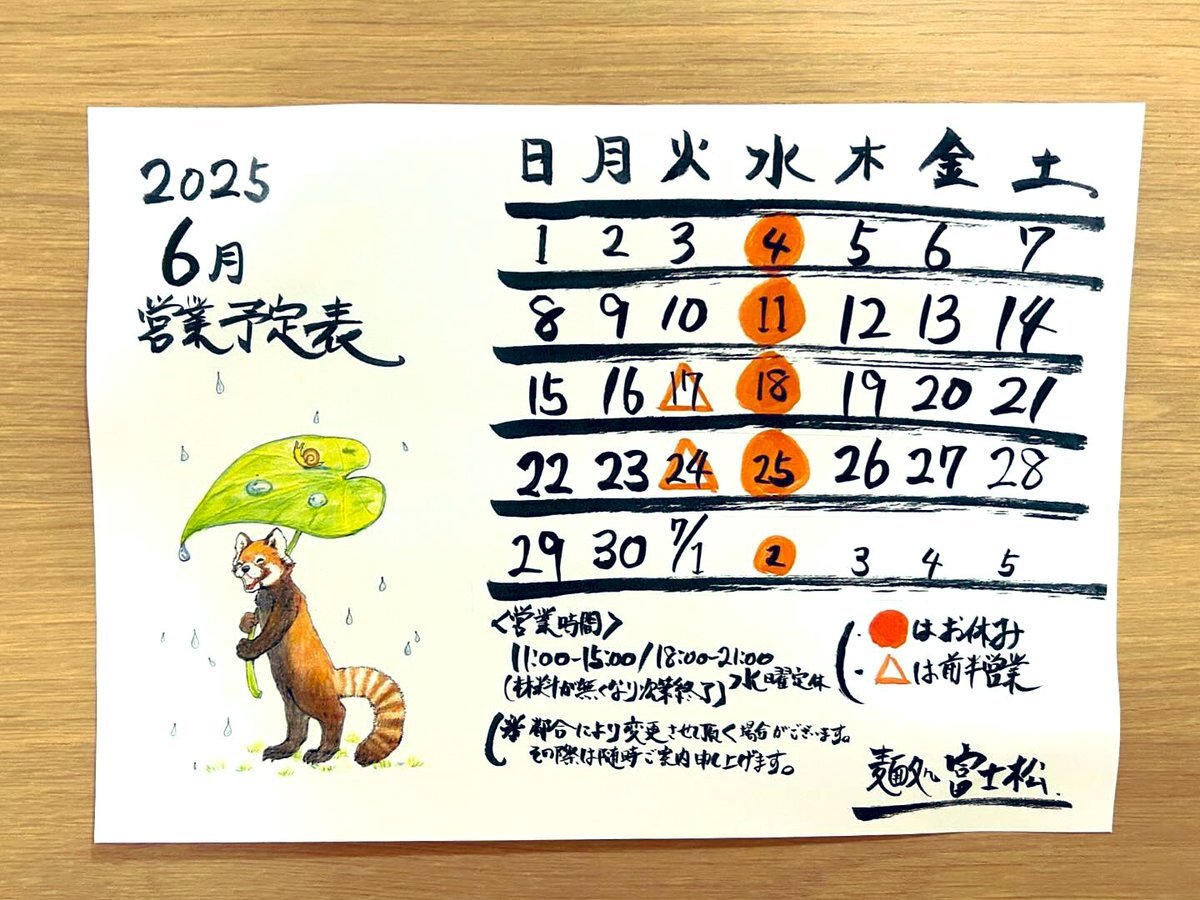 2025
6月
営業予定表
日 月 火 水 木 金 土
1 2 3 4 5 6 7
8 9 10 11 12 13 14
15 16 17 18 19 20 21
22 23 24 25 26 27 28
29 30 7/1 2 3 4 5
<営業時間>
11:00-15:00/18:00-21:00
(材料が無くなり次第終了) 水曜定休
(※都合により変更させて頂く場合がございます。
その際は随時ご案内申し上げます。
(・●はお休み
・△は前半営業
麺処 富士松